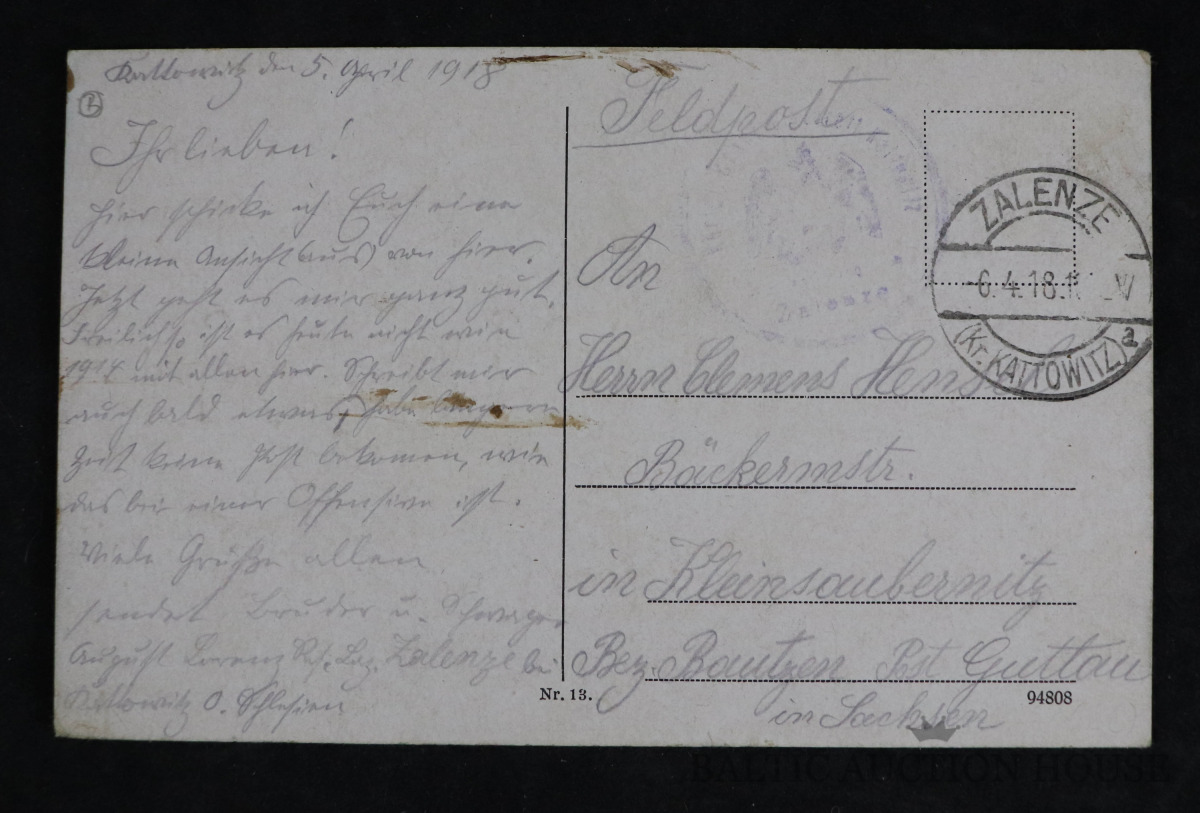 Kattowitz den 5. April 1918
Ihr lieben!
Hier schicke ich Euch eine
kleine Ansicht aus von hier.
Jetzt geht es mir ganz gut.
Freilich so ist es heute nicht wie
1914 mit allen hier. Schreibt mir
auch bald etwas, habe längere
Zeit keine Post bekomen, wie
das bei einer Offensive ist.
Viele Grüße allen
sendet Bruder u. Schwager
August Lorenz Res. Laz. Zalenze bei
Kattowitz O. Schlesien
Feldpost
An
Herrn Clemens
Bäckermstr.
in Kleinsaubernitz
Bez. Bautzen Post Guttau
in Sachsen
ZALENZE
6.4.18.
(Kr. KATTOWITZ) a
Zalenze
Nr. 13.
94808
BALTIC AUCTION HOUSE